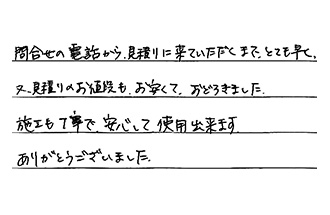 問合せの電話から、見積りに来ていただくまで、とても早く、
又、見積りのお値段も、お安くて、おどろきました。
施工も丁寧で、安心して使用出来ます。
ありがとうございました。